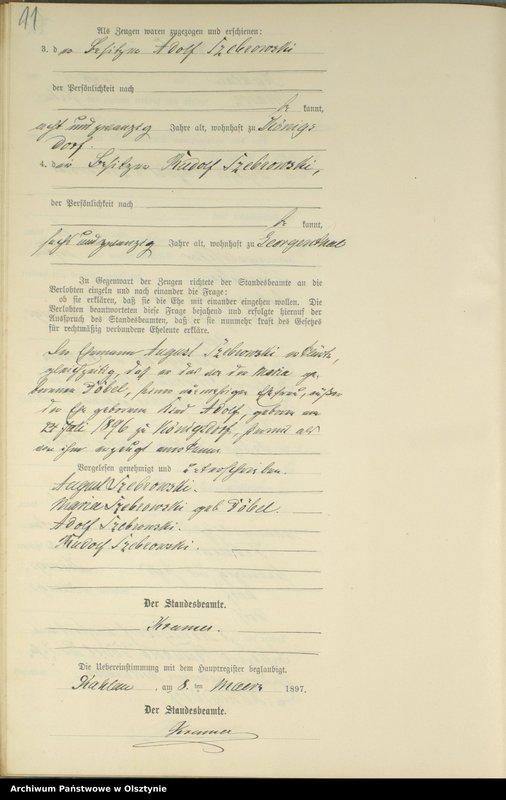 41
Als Zeugen waren zugezogen und erschienen:
3. der Besitzer Adolf Szebrowski
der Persönlichkeit nach
be kannt,
acht und zwanzig Jahre alt, wohnhaft zu Königs
dorf.
4. der Besitzer Rudolf Szebrowski,
der Persönlichkeit nach
be kannt,
sechs und zwanzig Jahre alt, wohnhaft zu Georgenthal
In Gegenwart der Zeugen richtete der Standesbeamte an die
Verlobten einzeln und nach einander die Frage:
ob sie erklären, daß sie die Ehe mit einander eingehen wollen. Die
Verlobten beantworteten diese Frage bejahend und erfolgte hierauf der
Ausspruch des Standesbeamten, daß er sie nunmehr kraft des Gesetzes
für rechtmäßig verbundene Eheleute erkläre.
Der Ehemann August Szebrowski erklärte,
gleichzeitig, daß er das von der Maria ge-
borenen Döbel, seiner nunmehrigen Ehefrau, außer
der Ehe geborene Kind Adolf, geboren am
Juli 1896 zu Königsdorf, hiermit als
von ihm erzeugt anerkenne.
Vorgelesen genehmigt und unterschrieben.
August Szebrowski.
Maria Szebrowski geb Döbel.
Adolf Szebrowski.
Rudolf Szebrowski.
Der Standesbeamte.
Kramer.
Die Uebereinstimmung mit dem Hauptregister beglaubigt.
Kahlau, am 8. ten Maerz 1897.
Der Standesbeamte.
Kramer
Archiwum Państwowe w Olsztynie